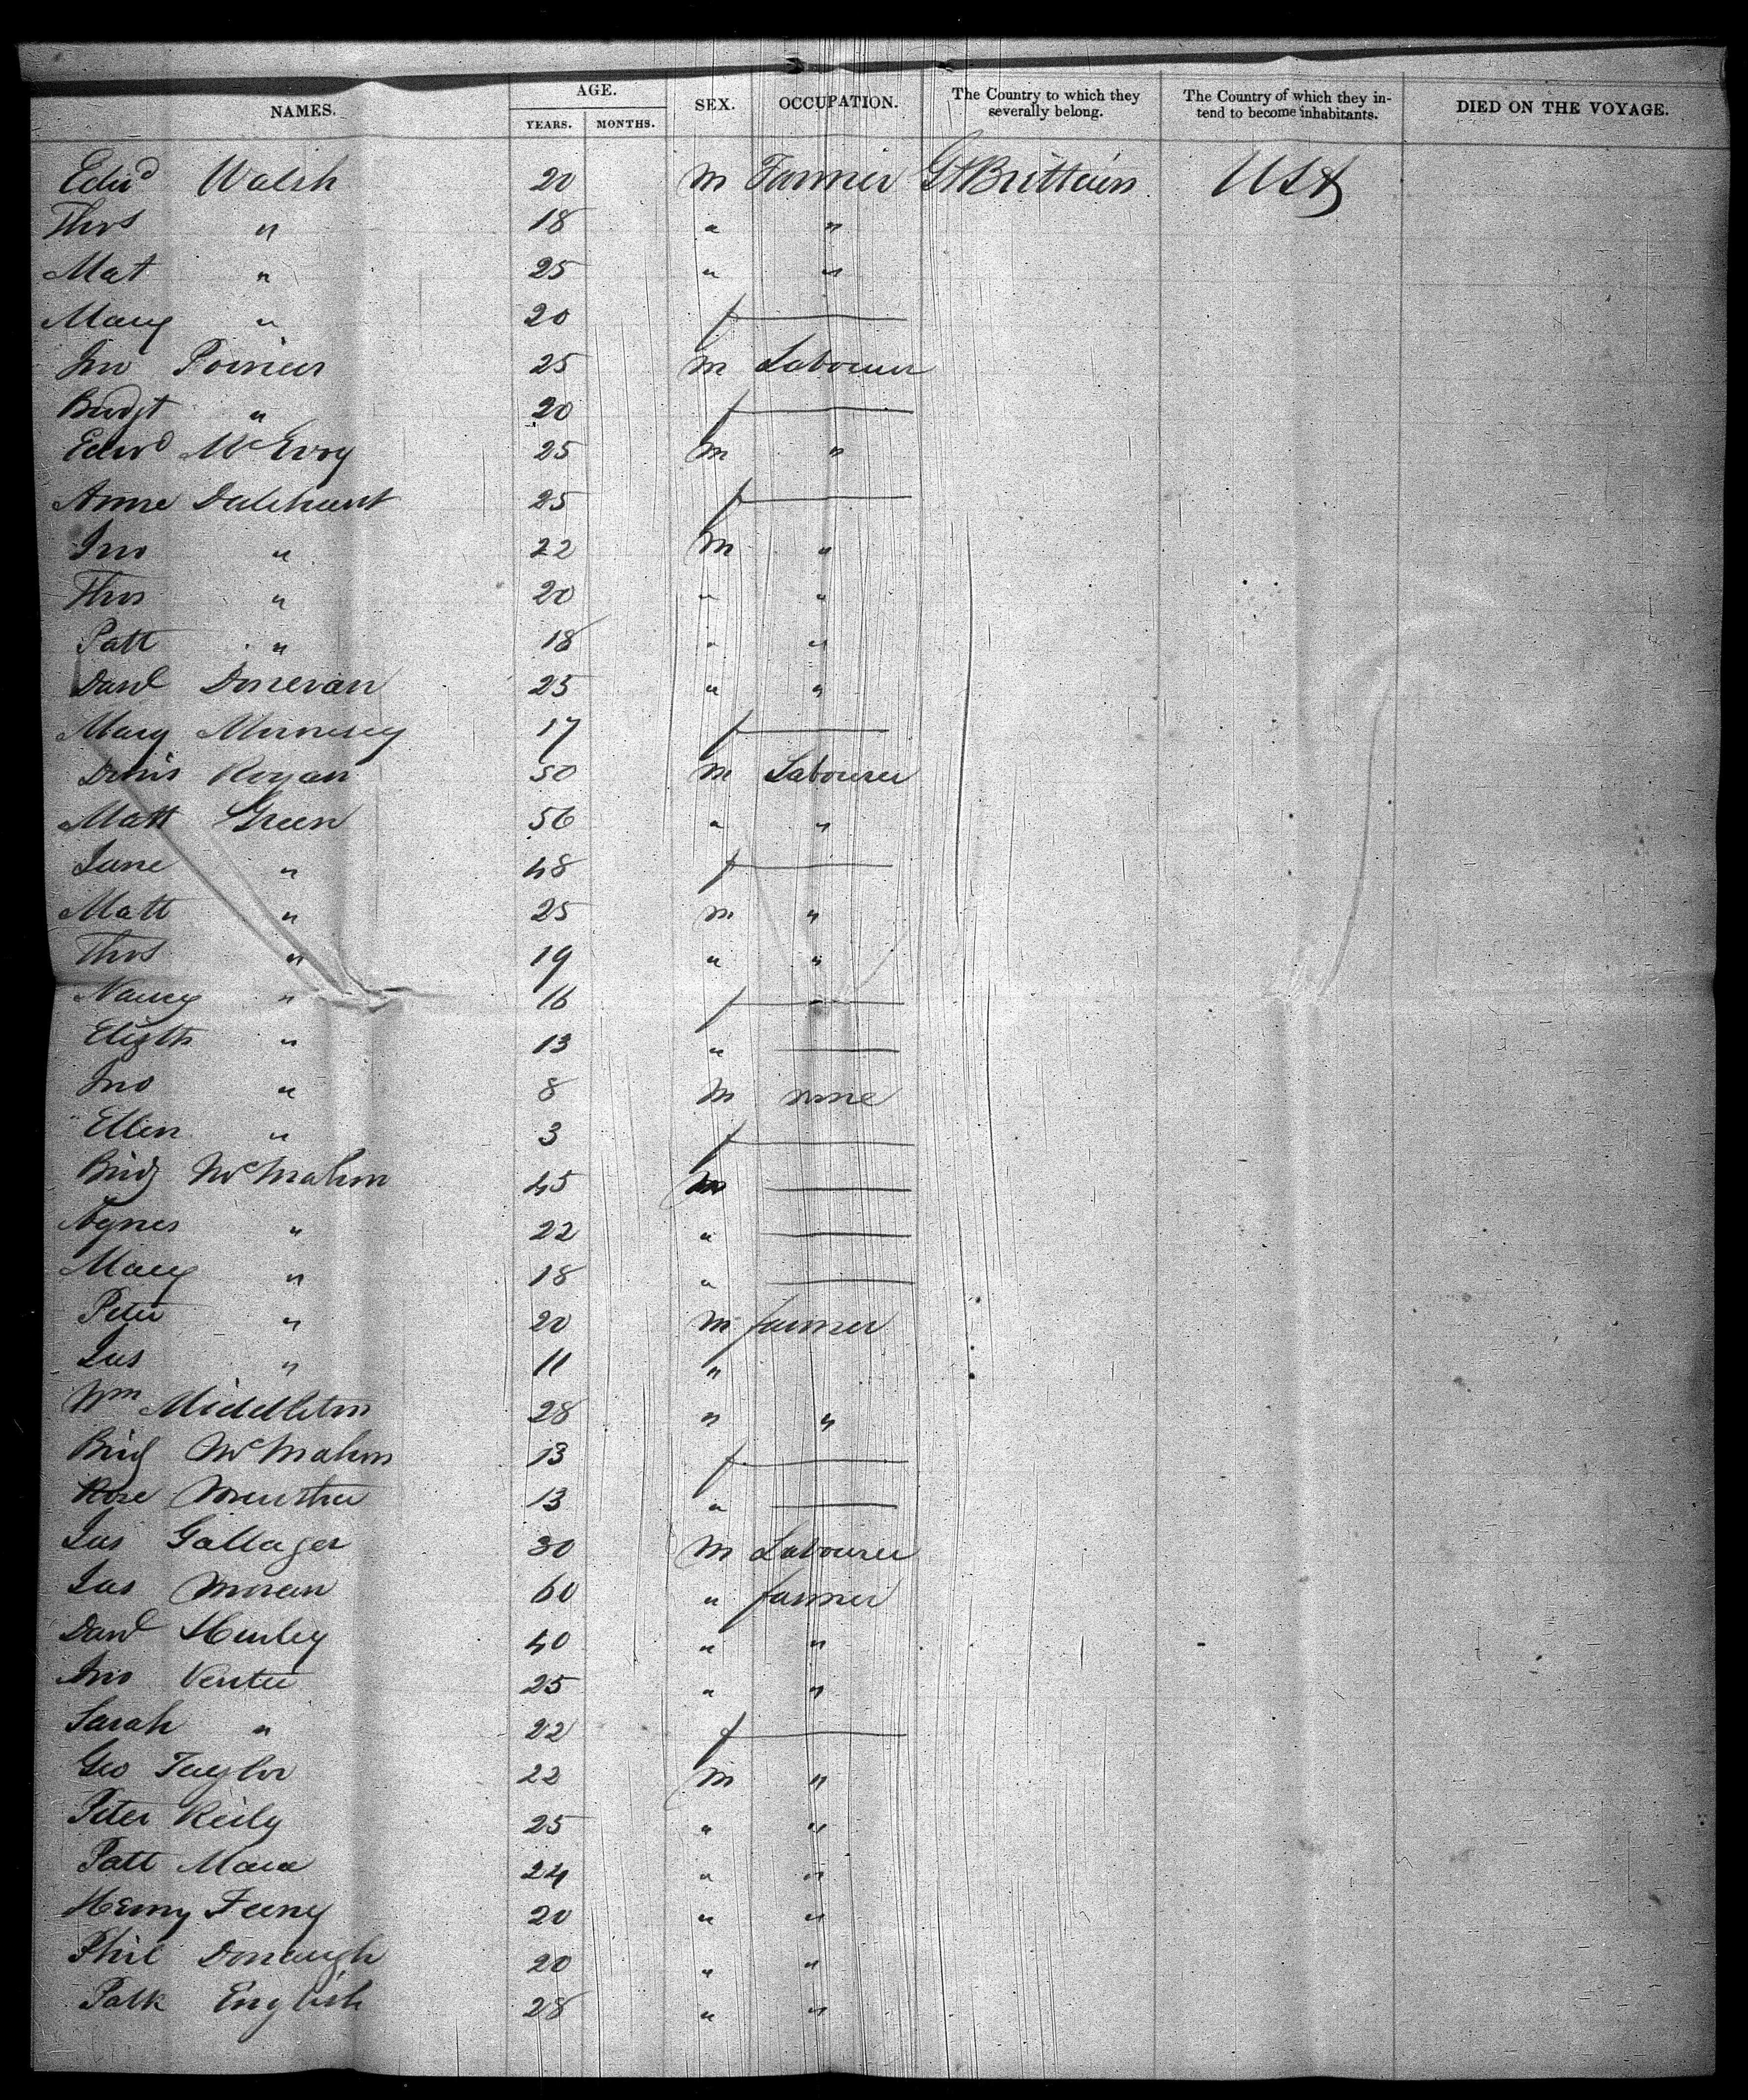 NAMES. AGE. SEX. OCCUPATION. The Country to which they severally belong. The Country of which they intend to become inhabitants. DIED ON THE VOYAGE.
YEARS. MONTHS.
Edwd Walsh 20 m Farmer Gt Brittain USA
Thos " 18 " "
Mat " 25 " "
Mary " 20 f —
Jno 25 m Labourer
Bridgt " 20 f —
Edwd McEvoy 25 m "
Anne Dalehunt 25 f —
Jno " 22 m "
Thos " 20 " "
Patt " 18 " "
Danl Donevan 25 " "
Mary 17 f —
Denis Rogan 50 m Labourer
Matt Green 56 " "
Jane " 48 f —
Matt " 25 m "
Thos " 19 " "
Nancy " 16 f —
Elizth " 13 " —
Jno " 8 m none
Ellen " 3 f —
Bridg McMahon 45 —
Agnes " 22 " —
Mary " 18 " —
Peter " 20 m farmer
Jas " 11 "
Wm Middleton 28 " "
Brid McMahon 13 f —
Rose 13 " —
Jas Gallager 30 m Labourer
Jas Moran 60 " farmer
Danl Henley 40 " "
Jno Venter 25 " "
Sarah " 22 f —
Geo Taylor 22 m "
Peter Reily 25 " "
Patt Mara 24 " "
Henry Feeny 20 " "
Phil Donaugh 20 " "
Patk English 28 " "